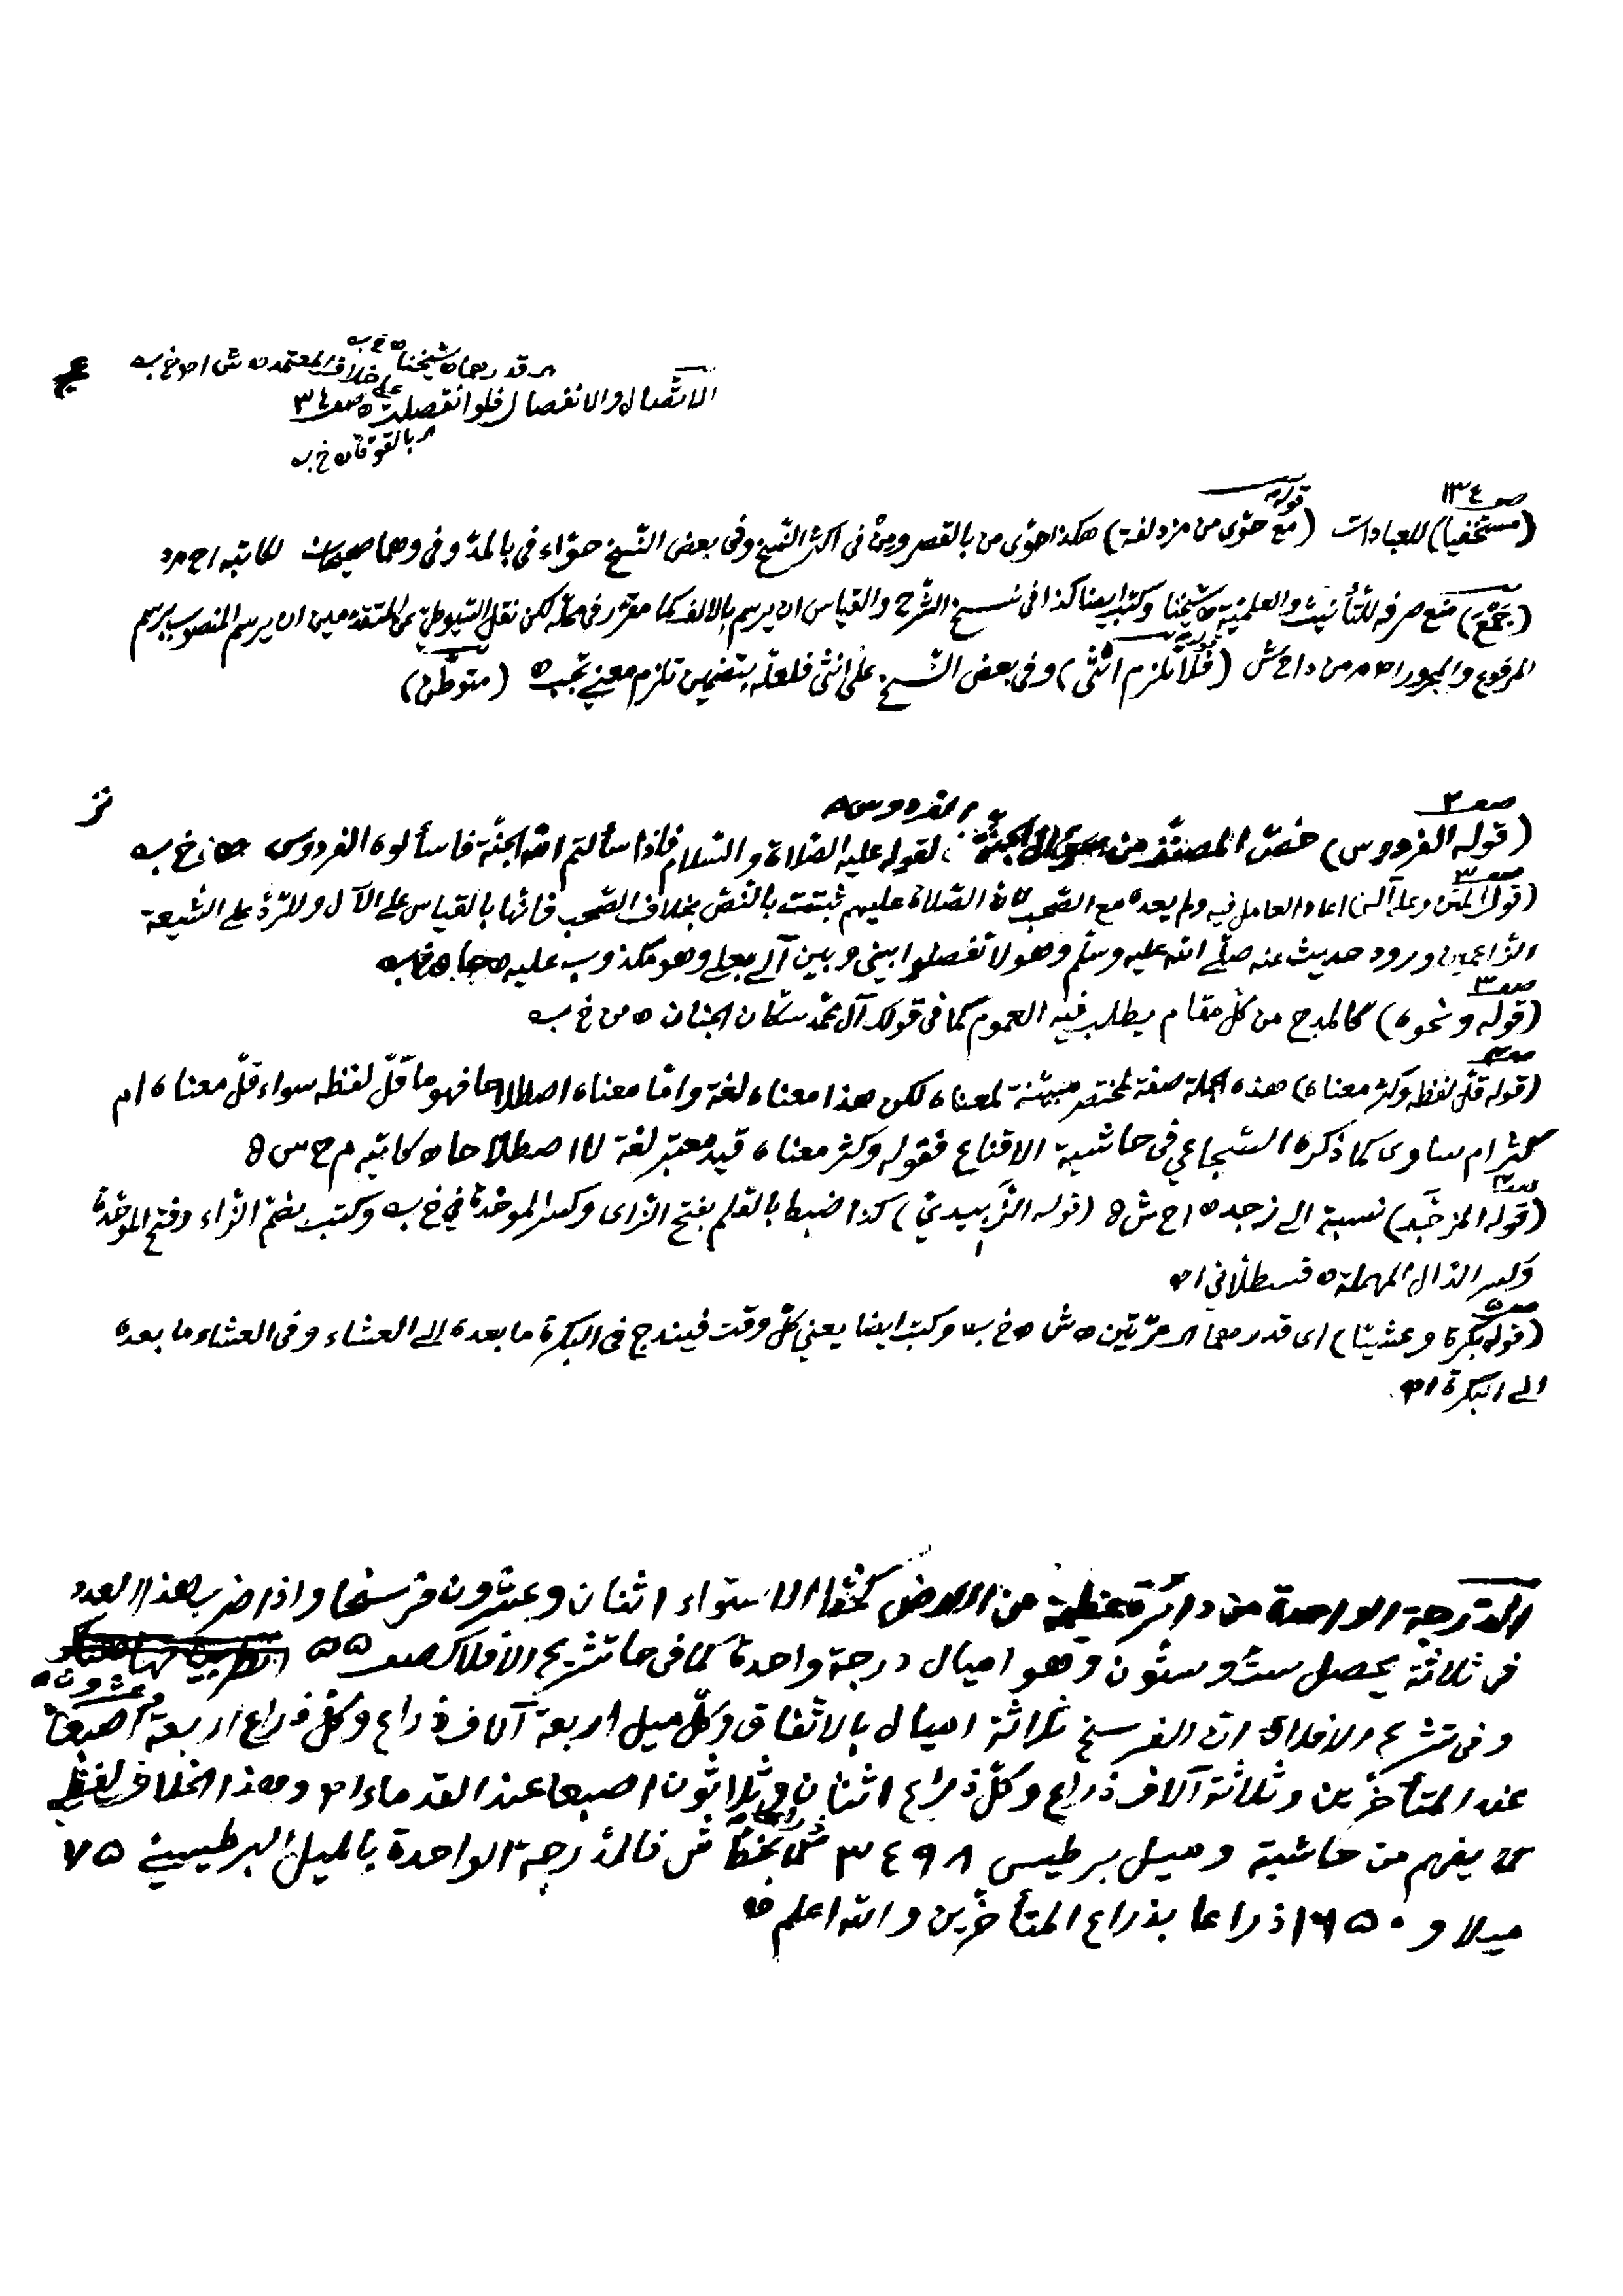 قدرهما شيخنا
على خلاف المعتمد ش اه خ ب
الاتصال والانفصال فلو انفصلت صعـ ٣٤
بالفوقان خ ب
صعـ ١٣٤
قوله
(مستحفيا) للعبادات (مع حوّى من مزدلفة) هكذا حوّى من بالقصر ومِنْ فى اكثر النّسخ وفى بعض النّسخ حوّاء فى بالمدّ وفى وهما صحيحان لكاتبه اح مرد
(جَمْعَ) منع صرفه للتّأنيث والعلميّة شيخنا وكتب ايضا كذا فى نسخ الشّرح والقياس ان يرسم بالالف كما مقرّر فى محلّه لكن نقل السّيوطى عن المتقدّمين ان يرسم المنصوب برسم
المرفوع والمجرور اه من داح ش (فلا تلزم انثى) وفى بعض النّسخ على انثى فلعلّه بتضمين تلزم معنى تجب (متوطّن)
صعـ ٢
الفردوس
(قوله الفردوس) خصّ المصنّف من الجنّة لقوله عليه الصّلاة والسّلام فاذا سألتم الله الجنّة فاسألوه الفردوس خ ب
صعـ ٣
(قول المتن وعلى آله) اعاد العامل فيه ولم يعده مع الصّحب لانّ الصّلاة عليهم ثبتت بالنّصّ بخلاف الصّحب فانّها بالقياس على الآل وللرّدّ على الشّيعة
الزّاعمين ورود حديث عنه صلّى الله عليه وسلّم وهو لا تفصلوا بينى وبين آلى بعلى وهو مكذوب عليه خ ب
صعـ ٣
(قوله ونحوه) كالمدح من كلّ مقام يطلب فيه العموم كما فى قولك آل محمّد سكّان الجنان من خ ب
(قوله قلّ لفظه وكثر معناه) هذه الجملة صفة لمختصر مبيّنة لمعناه لكن هذا معناه لغة وامّا معناه اصطلاحا فهو ما قلّ لفظه سواء قلّ معناه ام
كثر ام ساوى كما ذكره السّجاعي فى حاشية الاقناع فقوله وكثر معناه قيد معتبر لغة لا اصطلاحا كاتبه م ح س
(قوله المزجّد) نسبة الى زجد اح ش (قوله الزَّبِيدىّ) كذا ضبط بالقلم بفتح الزاى وكسر الموحّدة فى خ ب وكتب بضمّ الزّاء وفتح الموحّدة
وكسر الدّال المهملة قسطلّانى اه
صعـ ٥
(قوله بكرة وعشيّا) اى قدرهما مرّتين ش خ ب وكتب ايضا يعنى كلّ وقت فيندج فى البكرة ما بعده الى العشاء وفى العشاء ما بعده
الى البكرة اه
الدّرجة الواحدة من دائرة عظيمة من الارض كخطّ الاستواء اثنان وعشرون فرسخا واذا ضرب هذا العدد
فى ثلاثة يحصل ستّ وستّون وهو اميال درجة واحدة كما فى حا تشريح الافلاك صعـ ٥٥
وعشرون
وفى تشريح الافلاك انّ الفرسخ ثلاثة اميال بالاتّفاق وكلّ ميل اربعة آلاف ذراع وكلّ ذراع اربعة اصبعا
عند المتأخّرين وثلاثة آلاف ذراع وكلّ ذراع اثنان وثلاثون اصبعا عند القدماء اه وهذا الخلاف لفظى
كما يفهم من حاشية وميل برطيس ٣٤٩٨ ذراعا ش فالدّرجة الواحدة بالميل البرطيسيى ٧٥
ميلا و ١٦٥٠ ذراعا بذراع المتأخّرين والله اعلم